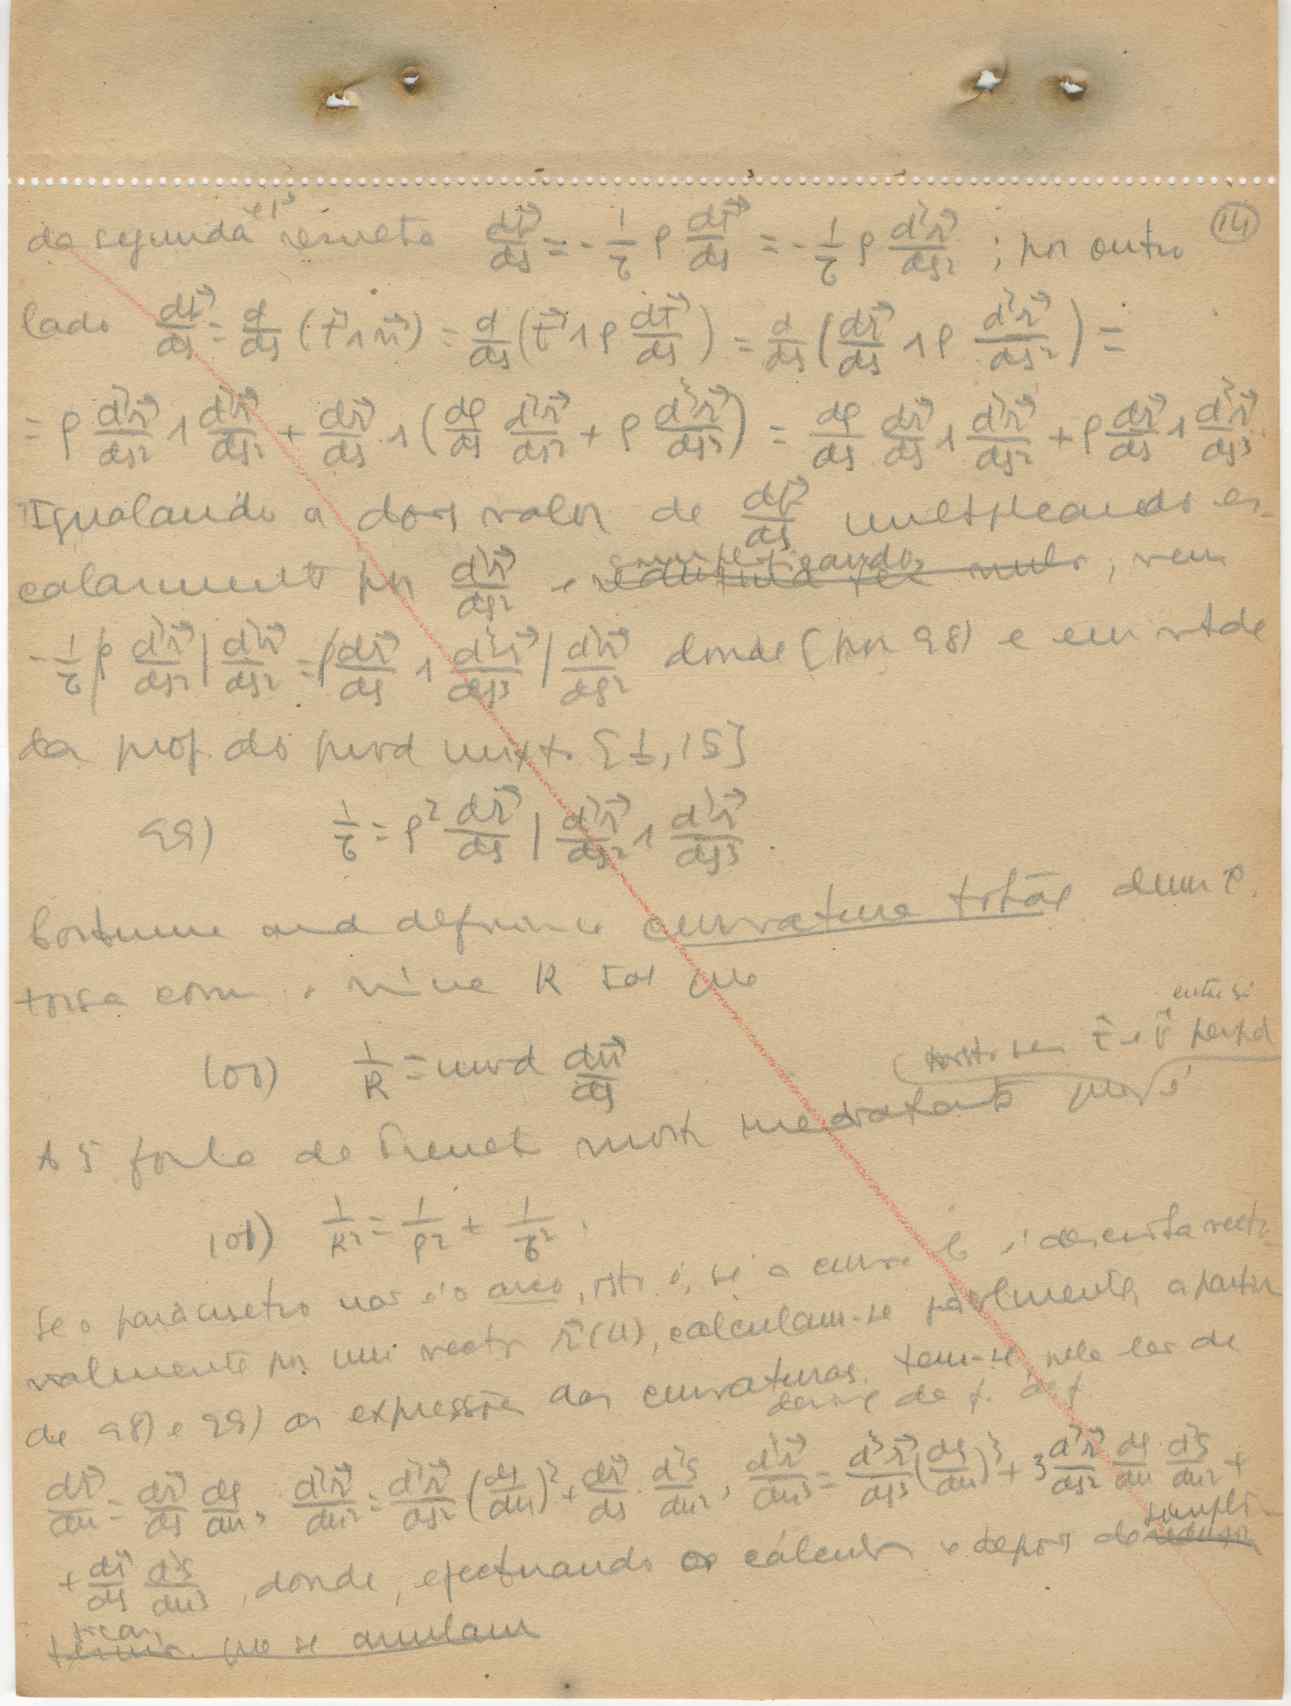 da segunda resulta db⃗/ds = - 1/τ ρ dt⃗/ds = - 1/τ ρ d²r⃗/ds² ; por outro (14)
lado db⃗/ds = d/ds (t⃗ ∧ n⃗) = d/ds (t⃗ ∧ ρ dt⃗/ds) = d/ds (dr⃗/ds ∧ ρ d²r⃗/ds²) =
= ρ d²r⃗/ds² ∧ d²r⃗/ds² + dr⃗/ds ∧ (dρ/ds d²r⃗/ds² + ρ d³r⃗/ds³) = dρ/ds dr⃗/ds ∧ d²r⃗/ds² + ρ dr⃗/ds ∧ d³r⃗/ds³.
Igualando os dois valor de db⃗/ds multiplicando es-
calarmente por d²r⃗/ds² e simplificando, vem
- 1/τ ρ d²r⃗/ds² | d²r⃗/ds² = ρ dr⃗/ds ∧ d³r⃗/ds³ | d²r⃗/ds² donde (por 98) e em virtde
da prop. do prod mixto [1, 15]
99) 1/τ = ρ² dr⃗/ds | d²r⃗/ds² ∧ d³r⃗/ds³.
Costume definir a curvatura total dum c.
torsa com o K tal que
100) 1/K = mod dn⃗/ds
entre si
t⃗ e b⃗ perpd
As de Frenet que é
101) 1/K² = 1/ρ² + 1/τ².
Se o parametro nao é o arco, isto é, se a curva é descrita vecto-
rialmente por um vector r⃗(u), calculam-se facilmente, a partir
de 98) e 99) as expressões das curvaturas. tem-se pela de
deriv de f. de f
dr⃗/du = dr⃗/ds ds/du, d²r⃗/du² = d²r⃗/ds² (ds/du)² + dr⃗/ds d²s/du², d³r⃗/du³ = d³r⃗/ds³ (ds/du)³ + 3 d²r⃗/ds² ds/du d²s/du² +
+ dr⃗/ds d³s/du³, donde, efectuando os cálculos e depois de simpli-
ficar, que se anulam